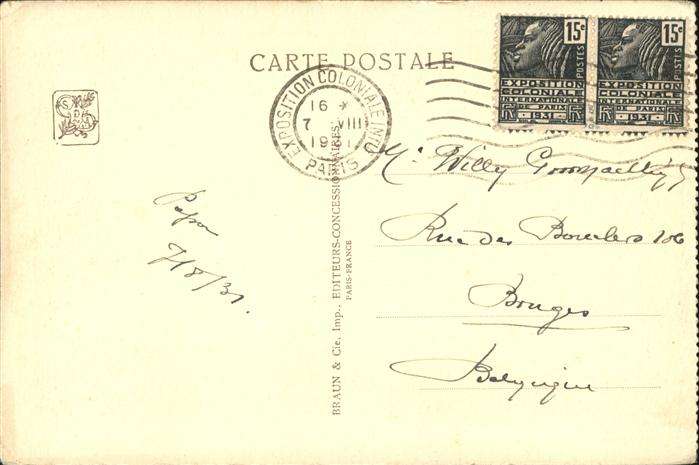 CARTE POSTALE
15c
POSTES
EXPOSITION
COLONIALE
INTERNATIONALE
DE PARIS
1931
15c
POSTES
EXPOSITION
COLONIALE
INTERNATIONALE
DE PARIS
1931
EXPOSITION COLONIALE INTLE
16 *
7 VIII
19 1
PARIS
Papa
7/8/31.
BRAUN & Cie. Imp., EDITEURS-CONCESSIONNAIRES
PARIS-FRANCE
Mr. Willy
Rue des 106
Bruges
Belgique